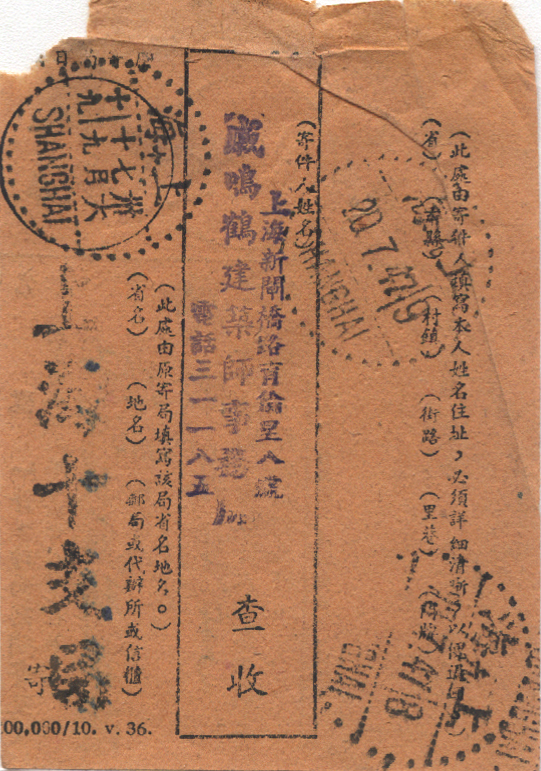 （此處由寄件人填寫本人姓名住址，必須詳細清晰，以
（省）（市縣）（村鎮）（街路）（里巷）
（寄件人姓名）
上海新閘橋路有倫里八號
戚鳴鶴建築師事務所
電話三一一八五
查收
（此處由原寄局填寫該局省名地名。）
（省名）（地名）（郵局或代辦所或信櫃）
上海十支局
寄
SHANGHAI
20.7.47
SHANGHAI
00,000/10. v. 36.